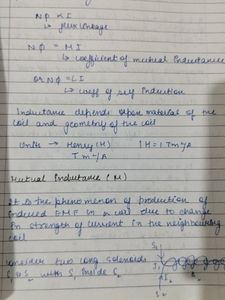 Nφ ∝ I
↳ flux linkage
Nφ = MI
↳ coefficient of mutual Inductance
OR Nφ = LI
↳ coeff of self Induction
Inductance depends upon material of the
coil and geometry of the coil
Units → Henry (H) 1H = 1 Tm²/A
Tm²/A
Mutual Inductance (M)
It is the phenomenon of production of
induced EMF in a coil due to change
in strength of current in the neighbouring
coil
Consider two long solenoids
S₁ S₂ with S₁ inside S₂
S₂
S₁